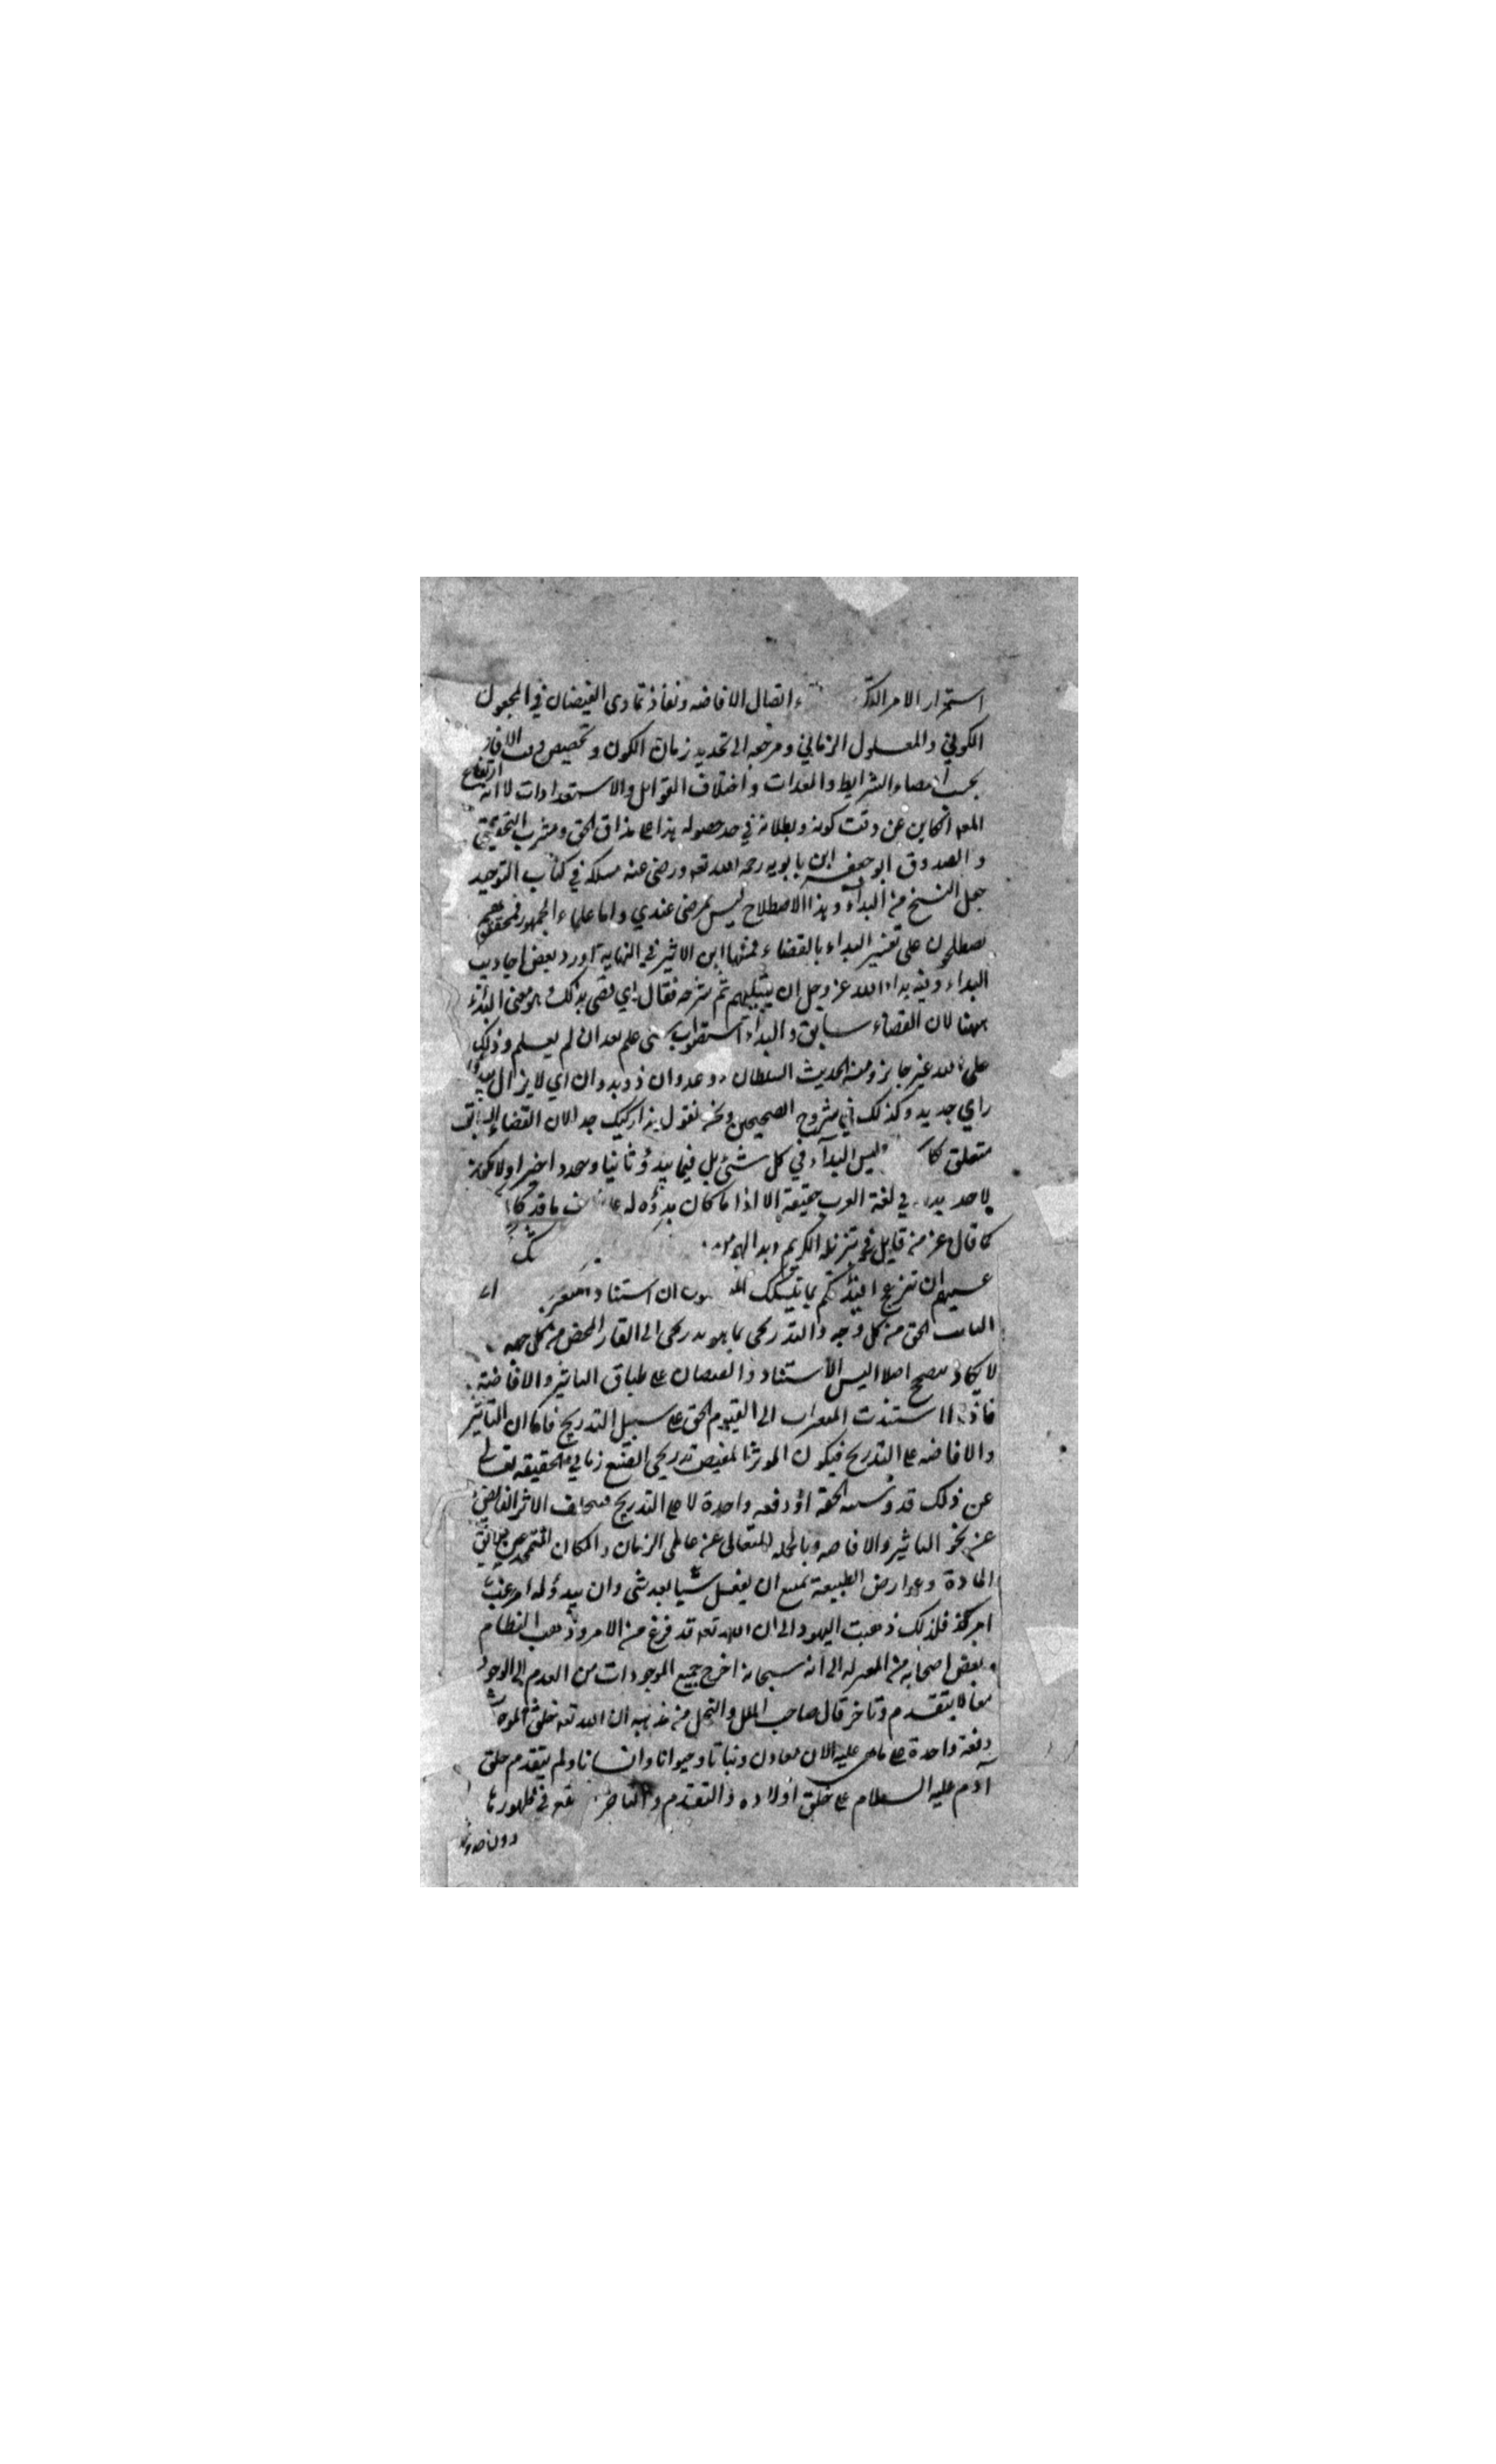 استمرار الامر التكو ء واتصال الافاضه ونفاذ تمادى الفيضان في المجعول
الكوني والمعلول الزماني ومرجعه الى تحديد زمان الكون وتخصيص وقت الافاضة
بحسب اقتضاء الشرايط والمعدات واختلاف القوابل والاستعدادات لا انه ارتفاع
المعلول الكاين عن وقت كونه وبطلانه في حد حصوله هذا على مذاق الحق ومشرب التحقيق
والصدوق ابو جعفر ابن بابويه رحمه الله تعه ورضى عنه مسلكه في كتاب التوحيد
جعل النسخ من البداء وهذا الاصطلاح ليس بمرضى عندي واما علماء الجمهور فمحققوهم
يصطلحون على تفسير البداء بالقضاء فمنها ابن الاثير في النهاية اورد بعض احاديث
البداء وفيه بدا لله عز وجل ان يبتليهم ثم شرحه فقال اي قضى بذلك وهو معنى البداء
ههنا لان القضاء سابق والبداء استصواب شى علم بعد ان لم يعلم وذلك
على الله غير جايز ومنه الحديث السلطان ذو عدوان ذو بدوان اي لا يزال يبدو له
راي جديد وكذلك في شروح الصحيحين ونحن نقول هذا ركيك جدا لان القضاء السابق
متعلق بكل وليس البداء في كل شئ بل فيما يبدؤ ثانيا ويتجدد اخيرا ولا يكون
لاحد بداء في لغة العرب حقيقة الا اذا ما كان بدؤه له على خلاف ما قد كان
كما قال عز من قايل في تنزيله الكريم وبدا لهم من
شك
عسيتم ان تنزعج افئدتكم بما يتشكك ان استناد المتغير الى
الثابت الحق من كل وجه والتدريجى بما هو تدريجى الى القار المحض من كل جهه
لا يكاد يصح اصلا اليس الاستناد والفيضان على طباق التاثير والافاضة
فاذا استندت المتغيرات الى القيوم الحق على سبيل التدريج فاما كان التاثير
والافاضه على التدريج فيكون الموثر المفيض تدريجى الصنع زماني الحقيقه تعالى
عن ذلك قدوسيته الحقه او دفعه واحدة لا على التدريج فيتخلف الاثر الفايض
عن نحو التاثير والافاضه وبالجمله المتعالى عن عالمى الزمان والمكان المتمجد عن علايق
المادة وعوارض الطبيعة يمتنع ان يفعل شيا بعد شى وان يبدؤ له امر غب
امر فلذلك ذهبت اليهود الى ان الله تعه قد فرغ من الامر وذهب النظام
وبعض اصحابه من المعتزله الى انه سبحانه اخرج جميع الموجودات من العدم الى الوجود
معا لا بتقدم وتاخر قال صاحب الملل والنحل من مذهبه ان الله تعه خلق الموجودات
دفعة واحدة على ما هى عليه الان معادن ونباتا وحيوانا وانسانا ولم يتقدم خلق
آدم عليه السلام على خلق اولاده والتقدم والتاخر يقع في ظهورها
دون حدوثها